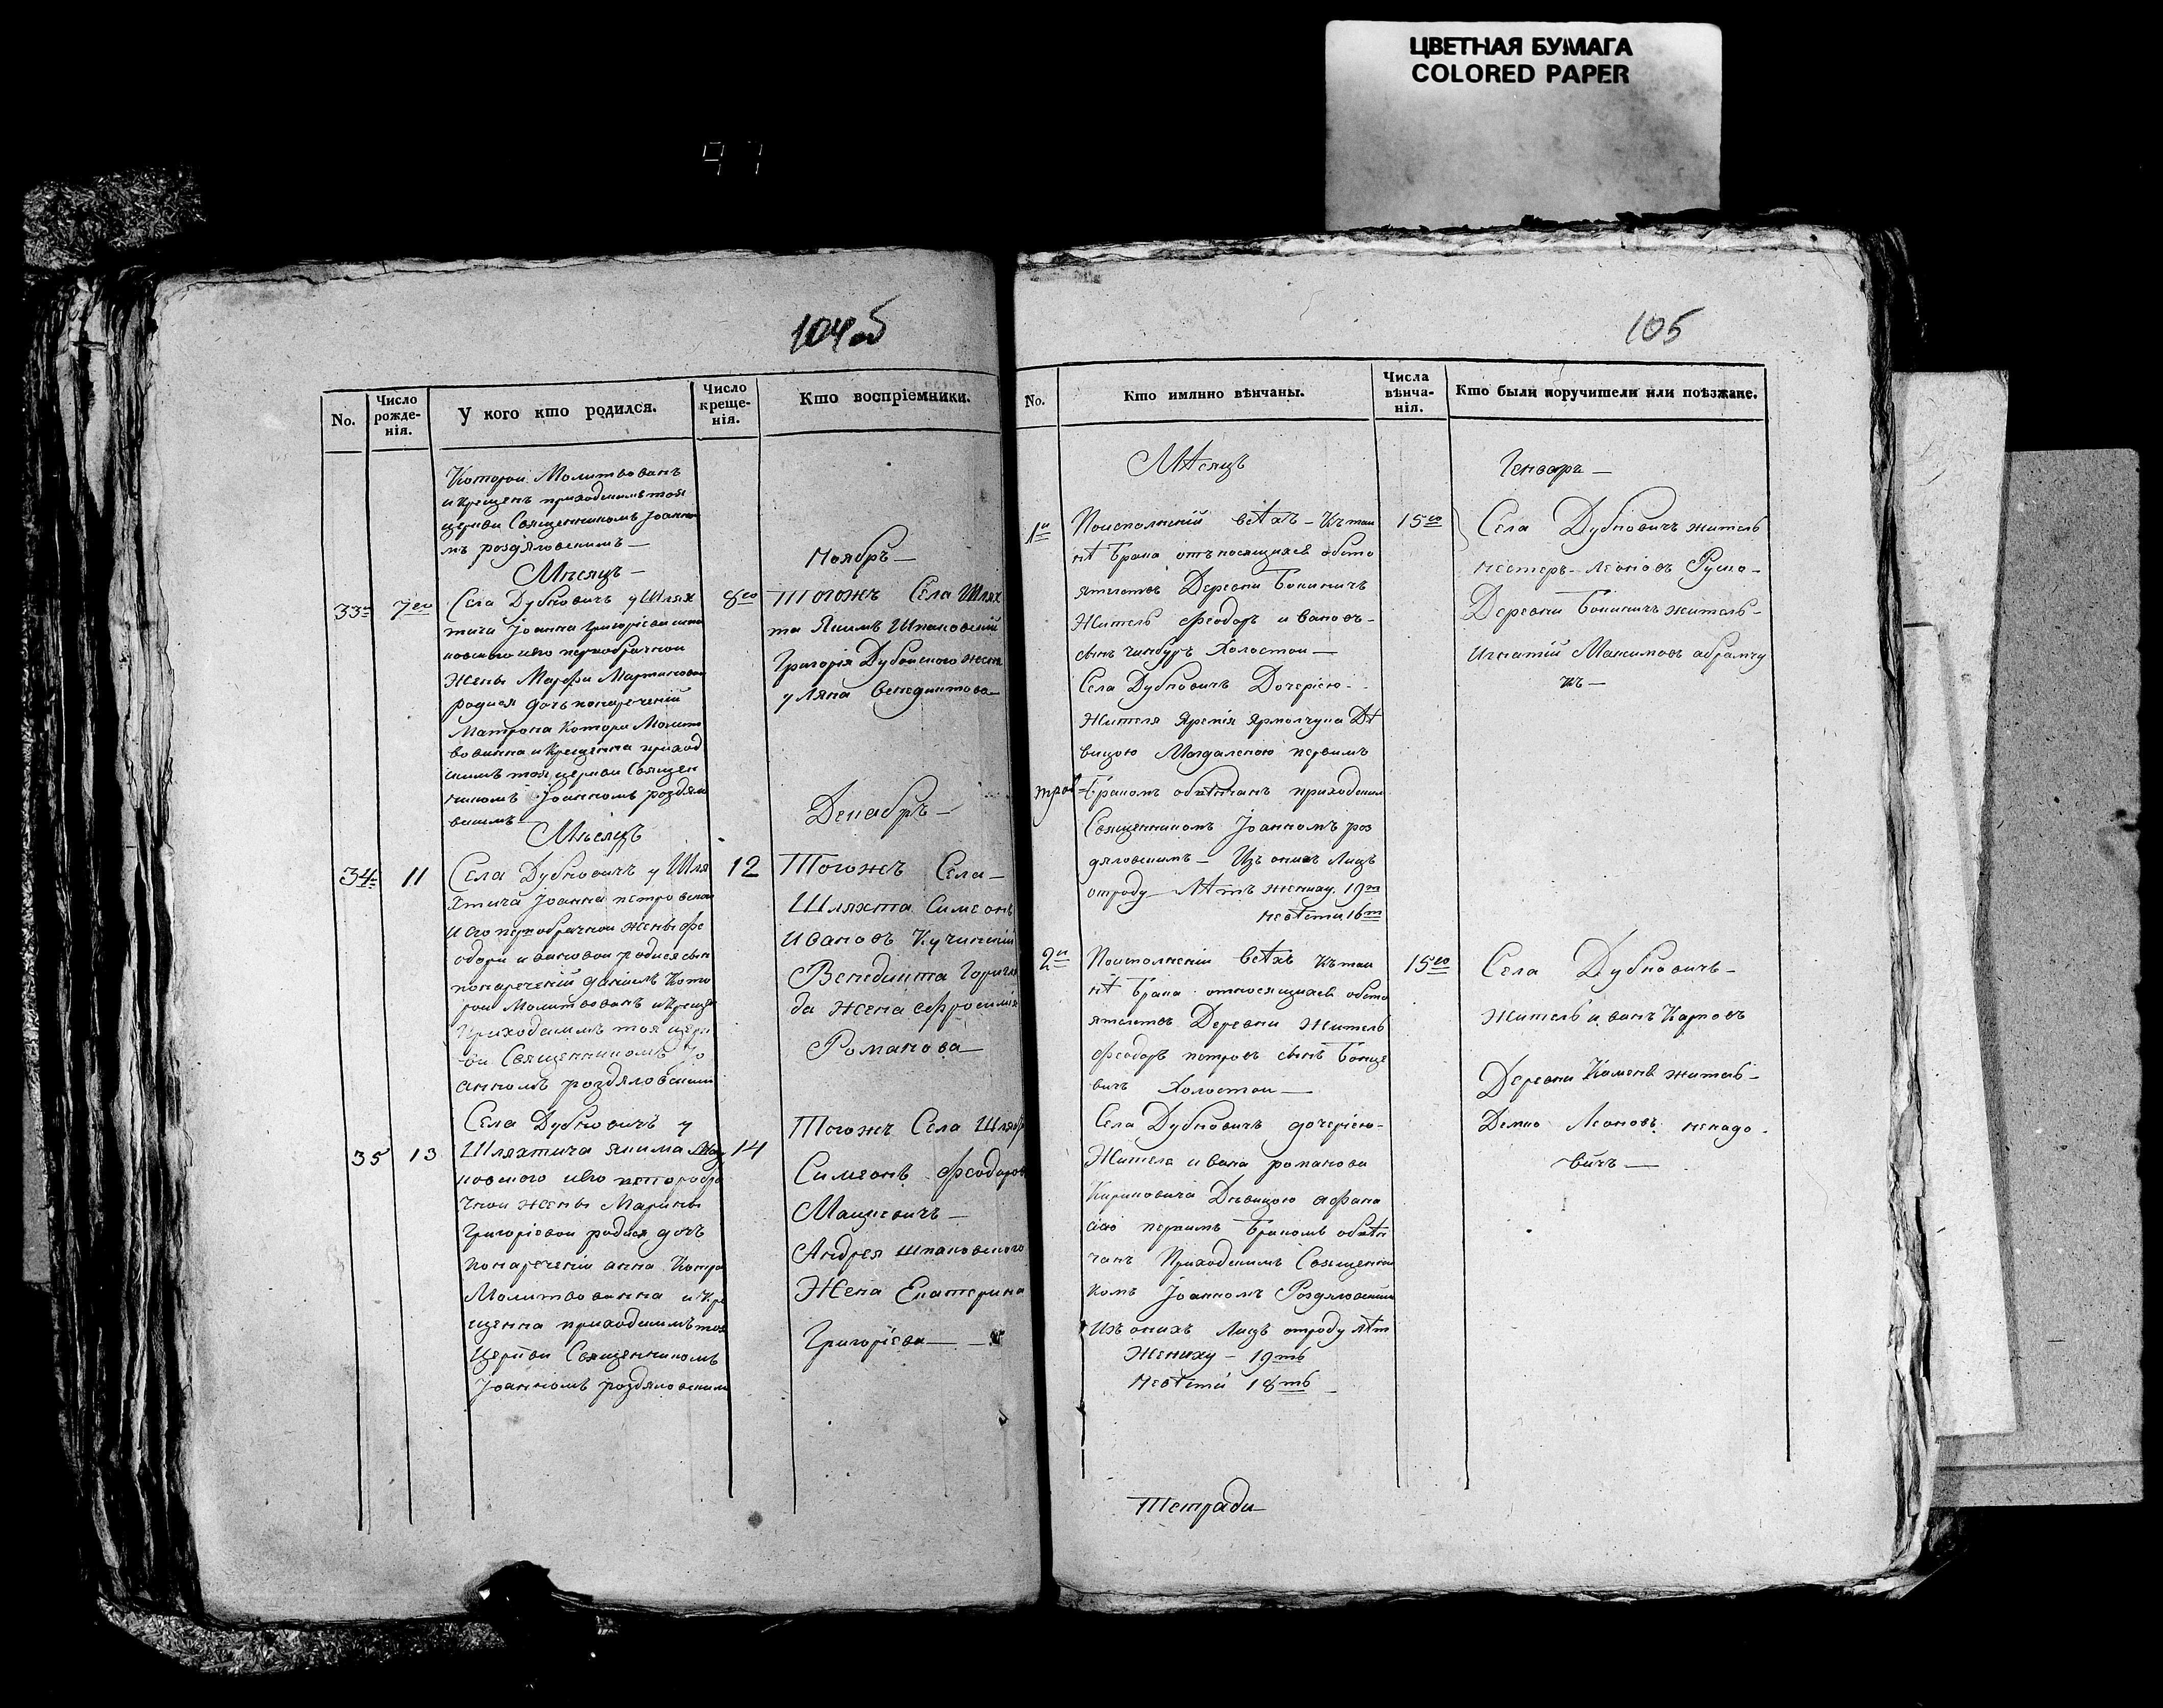 ЦВЕТНАЯ БУМАГА
COLORED PAPER
97
104об
No.
Число рожде-нія.
У кого кто родился.
Число креще-нія.
Кто воспріемники.
Которой Молитвованъ
и крещенъ приходскимъ тоя
церкви Священникомъ Іоанно
мъ роздяловскимъ —
Мѣсяцъ —
Ноябрь —
33
7го
Села Дубновичъ у Шлях
тича Іоанна Григоріева
новского и его первобрачной
жены Марфы Мартиновой
родися дочь понареченіи
Матрона Котора Молит
вованна и крещенна приход
скимъ тоя церкви Священ
никомъ Іоанномъ роздяло
вскимъ
8го
Тогожъ Села Шлях
та Якимъ Шпаковскій
Григорія Дубойского жена
уляна Венедиктова
Мѣсяцъ
Декабрь —
34
11
Села Дубновичъ у Шля
хтича Іоанна петровского
и его первобрачной жены фе
одоры ивановой родися сын
понареченіи даніилъ Кото
рой Молитвованъ и Креще
Приходскимъ тоя церк
ви Священникомъ Іо
анномъ роздяловскимъ
12
Тогожъ Села —
Шляхта Симеонъ
Ивановъ Кучинскій
Венедикта
да жена ефросинія
Романова
35
13
Села Дубновичъ у
Шляхтича якима
новского и его второбра
чной жены Марины
Григоріевой родися дочь
понареченіи анна Котра
Молитвованна и Кре
щенна приходскимъ тоя
Церкви Священникомъ
Іоанномъ роздяловским
14
Тогожъ Села Шлях
Симеонъ Феодоров
Мацкевичъ —
Андрея шпаковского
Жена Екатерина
Григоріева —
105
No.
Кто имянно вѣнчаны.
Числа вѣнча-нія.
Кто были поручители или поѣзжане.
Мѣсяцъ
Генваръ —
1й
Поисполненіи всѣхъ Къ таи
нѣ брака отъносящихся обсто
ятелствъ Деревни Бокиничъ
Житель Феодоръ ивановъ —
сынъ чинбуръ Холостои —
Села Дубновичъ Дочерію —
Жителя Яремія Ярмолчука Дѣ
вицою Магдаленою первымъ
Бракомъ обвѣнчанъ приходским
Священникомъ Іоанномъ роз
дяловскимъ — Изъ онихъ Лицъ
отроду Лѣтъ жениху 19т
невѣсти 16т
15го
Села Дубновичъ житель
нестеръ Леоновъ
Деревни Бокиничъ житель —
Игнатій Максимовъ абрамчу
къ —
2й
Поисполненіи всѣхъ Къ таи
нѣ брака относящихся обсто
ятелствъ Деревни Житель
Феодоръ петровъ сынъ
вичъ Холостои —
Села Дубновичъ дочерію —
Жителя ивана романова
Кириловича Дѣвицою афана
сіею первимъ Бракомъ обвѣн
чанъ Приходскимъ Священни
комъ Іоанномъ Роздяловским
Изъ онихъ Лицъ отроду лѣт
Жениху — 19ть
Невѣсти 18ть
15го
Села Дубновичъ —
житель иванъ Карповъ
Деревни Каменя житель —
Демко Леоновъ ненадо
вичъ —
Тетради